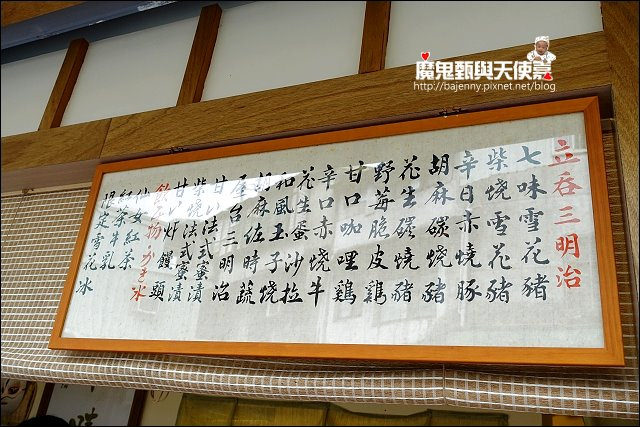 魔鬼甄與天使嘉
http://bajenny.pixnet.net/blog
立吞三明治
七味雪花豬
柴燒雪花豬
辛日赤燒豚
胡麻碳燒豬
花生碳燒豬
野莓脆皮雞
甘口咖哩雞
辛口赤燒牛
花生蛋沙拉
和風玉子燒
胡麻佐時蔬
屋台三明治
法式蜜漬
法式蜜漬
炸饅頭
かき冰
仙女紅茶
紅茶牛乳
雪花冰